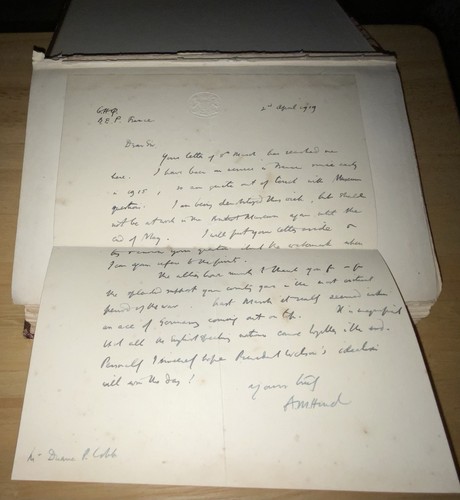 G.H.Q.
A.E.F. France
2nd April 1919
Dear Sir
Your letter of 5th March has reached me
here. I have been on service in France since early
in 1915, so am quite out of touch with Museum
questions. I am being demobilized this week, but shall
not be at work in the British Museum again until the
end of May. I will put your letter aside &
try & answer your question about the watermark when
I can your the prints.
The allies have much to thank you for - for
the splendid support your country gave in the most critical
period of the war. Last March it really seemed within
an ace of Germany coming out on top. It is magnificent
that all the English speaking nations came together in the end.
Personally I sincerely hope President Wilson's idealism
will win the day!
Yours truly
A M Hind
Mr Duane R. Cobb